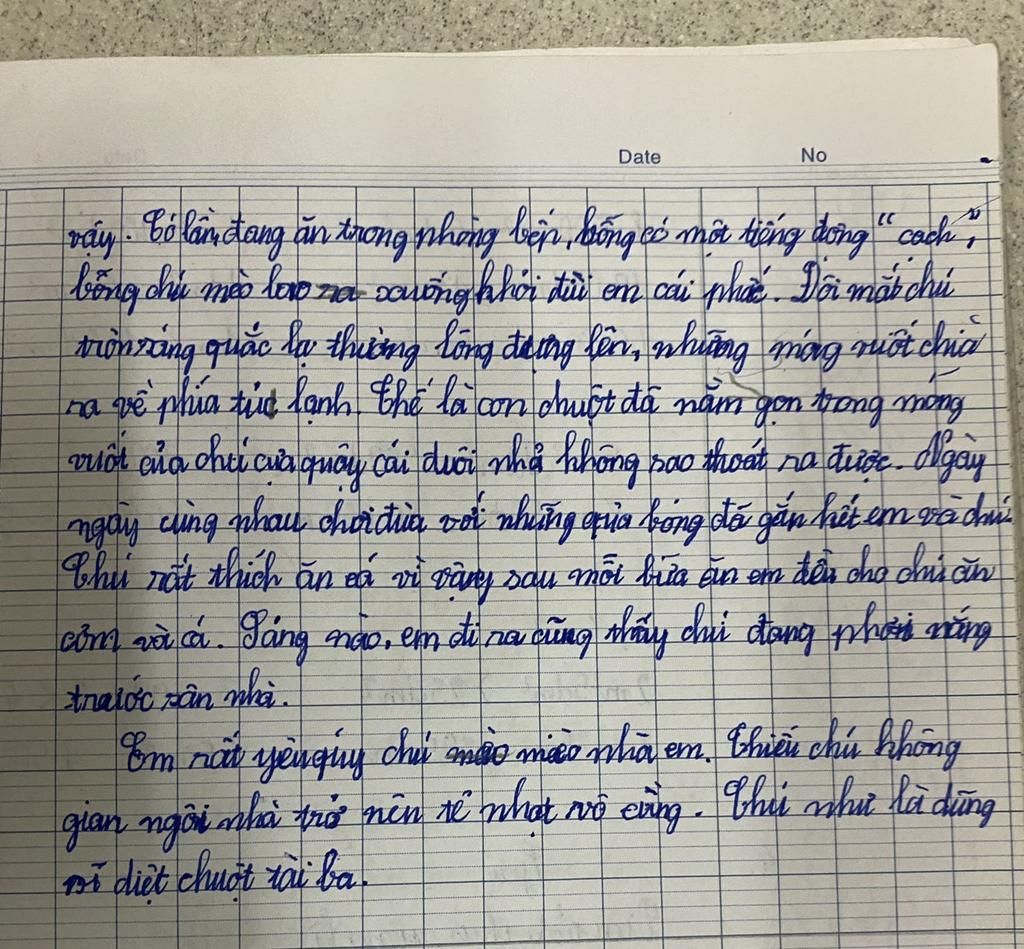 Date No
vậy. Có lần, đang ăn trong phòng bếp, bỗng có một tiếng động “cạch”,
bỗng chú mèo lao ra xuống khỏi đùi em cái phắc. Đôi mắt chú
tròn sáng quắc lạ thường lông dựng lên, những móng vuốt chìa
ra về phía tủ lạnh. Thế là con chuột đã nằm gọn trong móng
vuốt của chú cựa quậy cái đuôi nhỏ không sao thoát ra được. Ngày
ngày cùng nhau chơi đùa với những qủa bóng đã gắn kết em và chú.
Chú rất thích ăn cá vì vậy sau mỗi bữa ăn em đều cho chú ăn
cơm và cá. Sáng nào, em đi ra cũng thấy chú đang phơi nắng
trước sân nhà.
Em rất yêu qúy chú mèo nhà em. Thiếu chú không
gian ngôi nhà trở nên tẻ nhạt vô cùng. Chú như là dũng
sĩ diệt chuột tài ba.